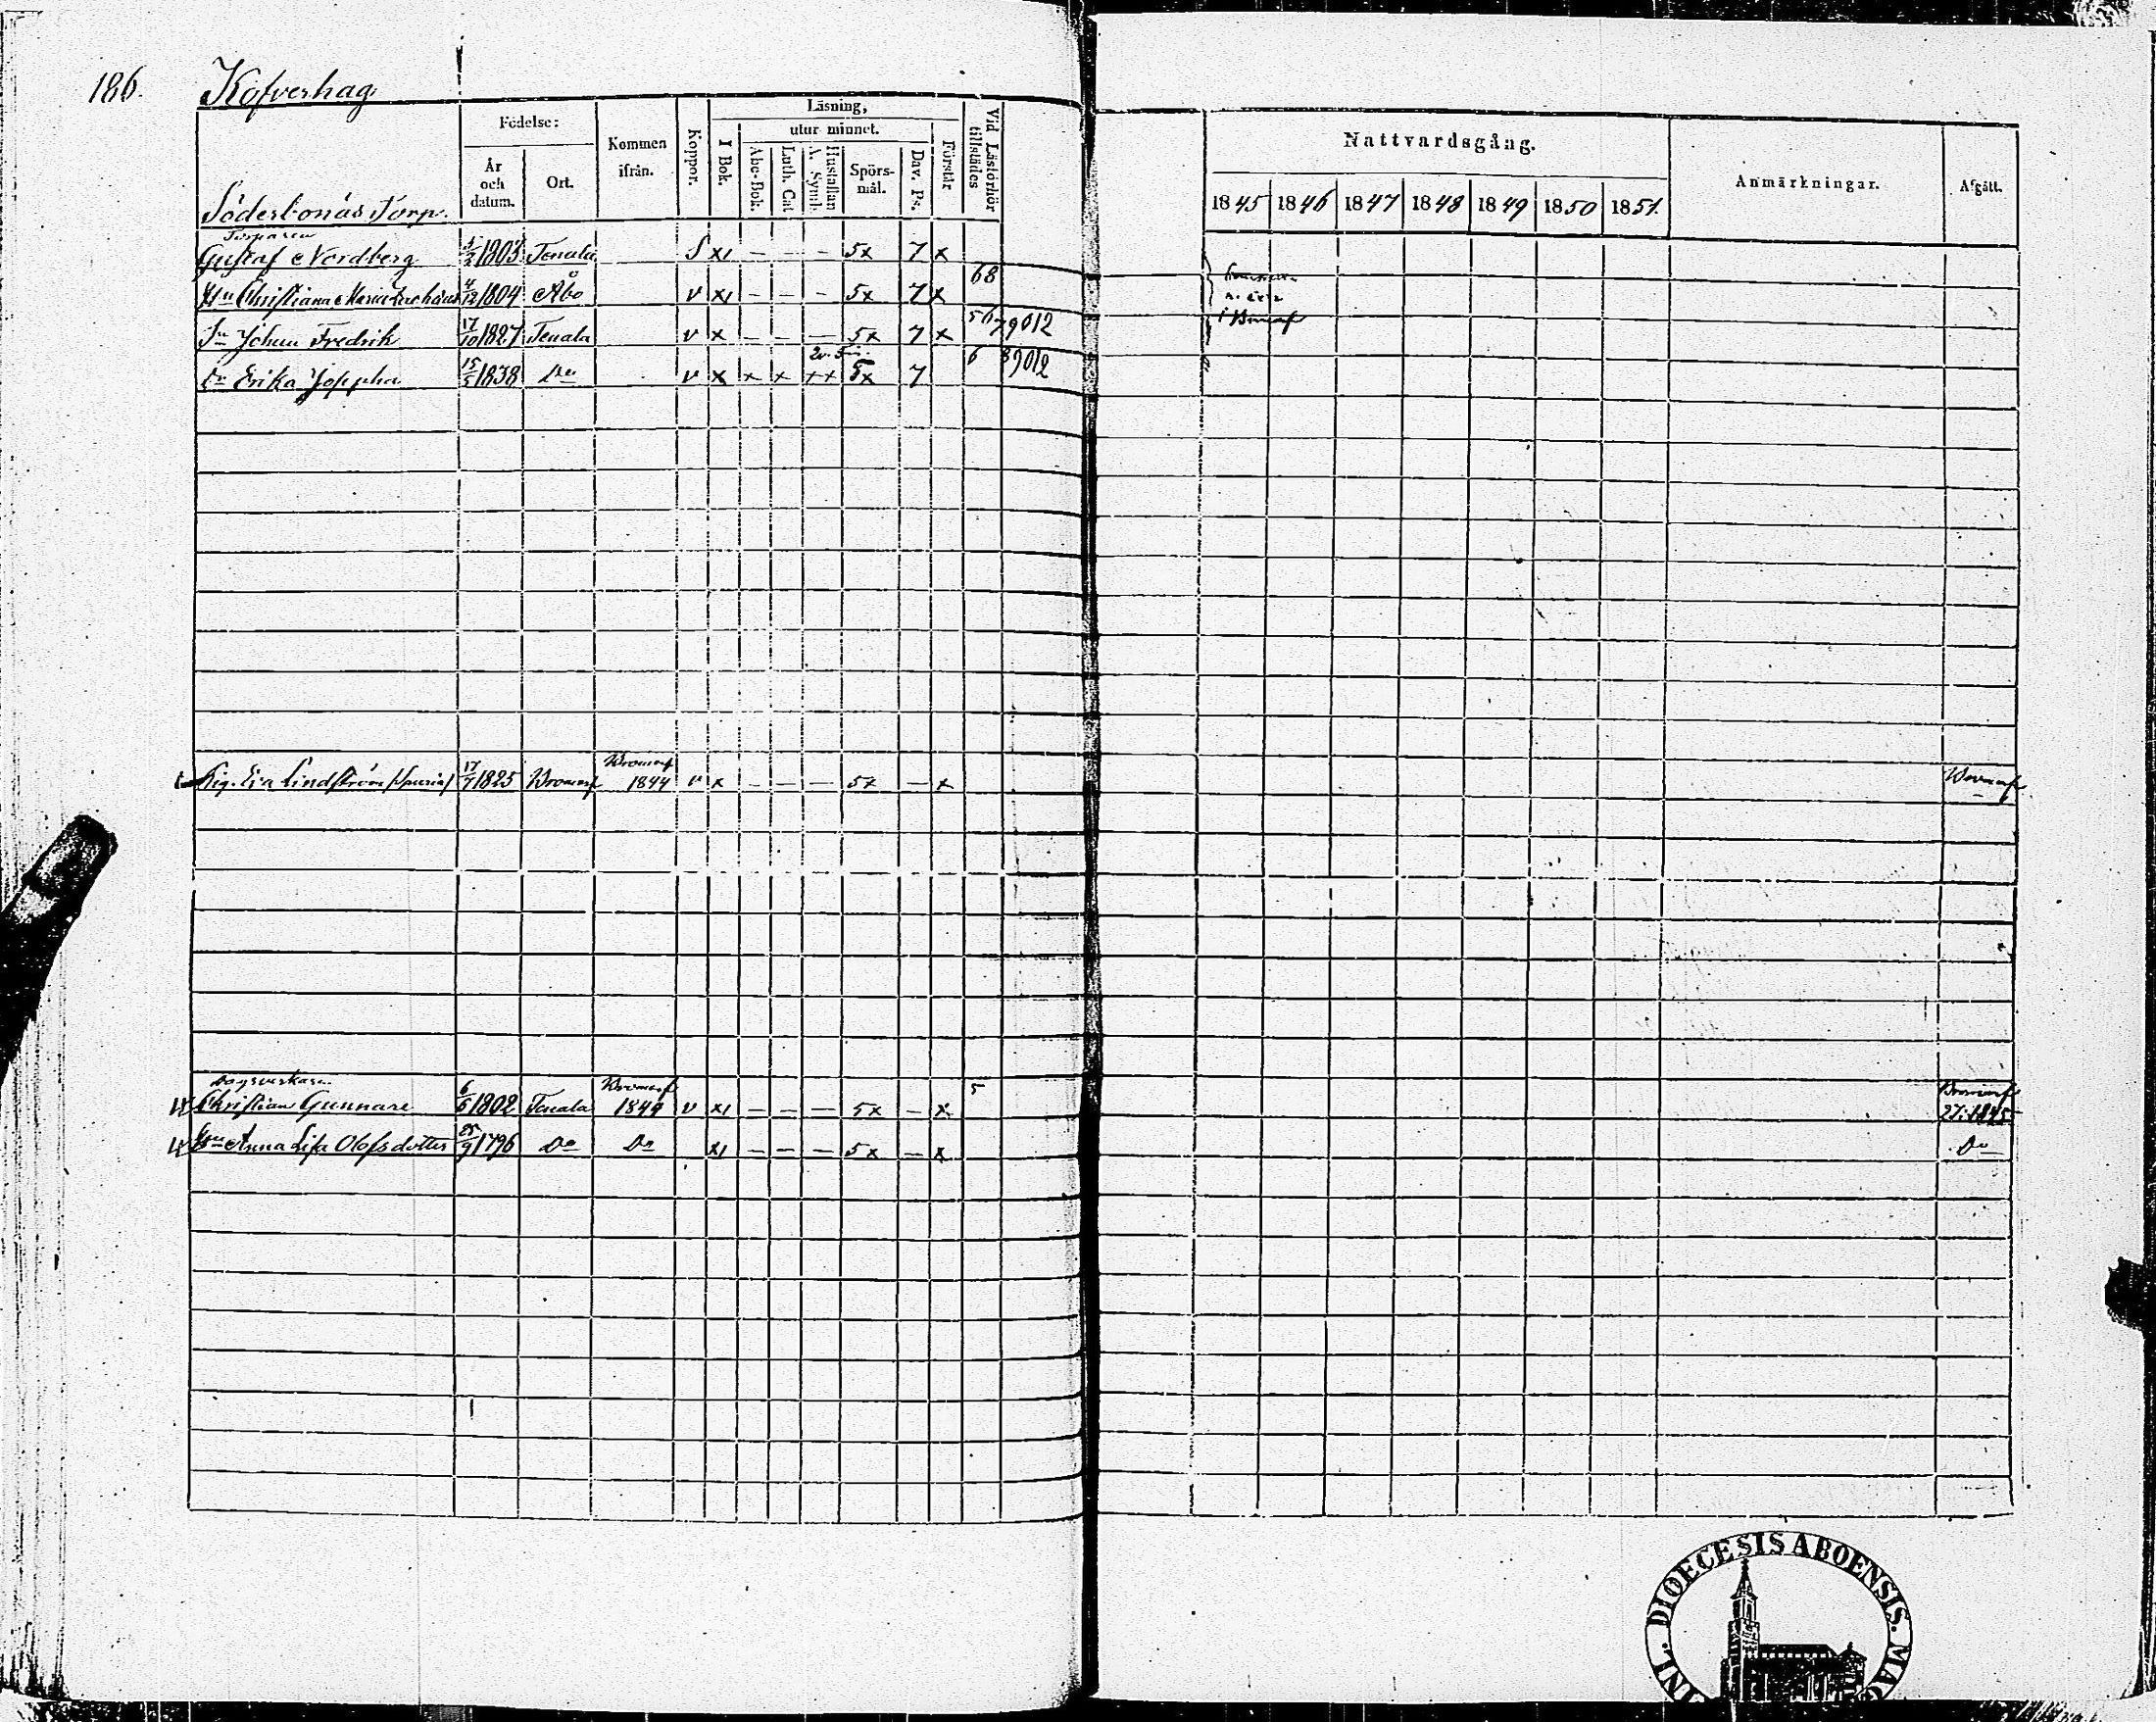 186. Kofverhag
Läsning,
Födelse: Kommen ifrån. Koppor. I Bok. utur minnet. Förstår Vid Läsförhör tillstädes
År och datum. Ort. Abc-Bok. Luth. Cat Hustaflan A. Symb. Spörs-mål. Dav. Ps.
Nattvardsgång. Anmärkningar. Afgått.
1845 1846 1847 1848 1849 1850 1851.
Söderbonäs Torp.
Torparen
Gustaf Nordberg 1803 Tenala S x1 — — — 5x 7 x
Hu Christiana Maria 1804 Åbo v x1 — — — 5x 7 x 68
Sn Johan Fredrik 17/10 1827 Tenala v x — — — 5x 7 x 56 79012
Dr Erika Josepha 15/5 1838 Do v x x x xx 5x 7 6 89012
i Bromarf
Pig. Eva Lindström 17/7 1825 Bromarf Bromarf 1844 v x — — — 5x — x Bromarf
Dagsverkaren
Christian Gunnare 6/6 1802 Tenala Bromarf 1844 v x1 — — — 5x — x 5 Bromarf 27. 1845
Hu Anna Lisa Olofsdotter 25/9 1796 Do Do x1 — — — 5x — x Do
DIOECESIS ABOENSIS.